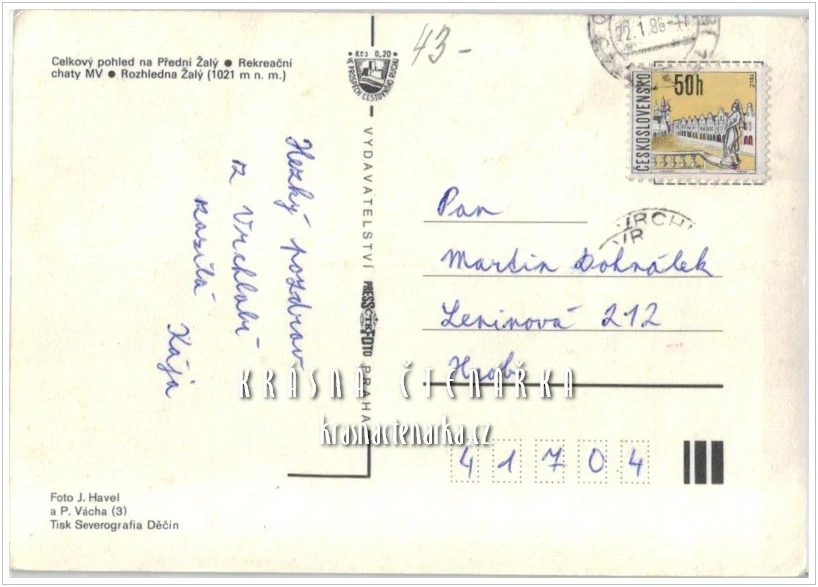 Celkový pohled na Přední Žalý ● Rekreační
chaty MV ● Rozhledna Žalý (1021 m n. m.)
Kčs 0,20
VE PROSPĚCH CESTOVNÍHO RUCHU
43-
22.1.86-11
ČESKOSLOVENSKO
50h
TELČ
VRCHL
VR
Hezký pozdrav
z Vrchlabí
zasílá
Kája
VYDAVATELSTVÍ PRESSFOTO PRAHA
ČTK
Pan
Martin Dohnálek
Leninová 212
Hrob
KRÁSNÁ ČTENÁŘKA
krasnactenarka.cz
41704
Foto J. Havel
a P. Vácha (3)
Tisk Severografia Děčín